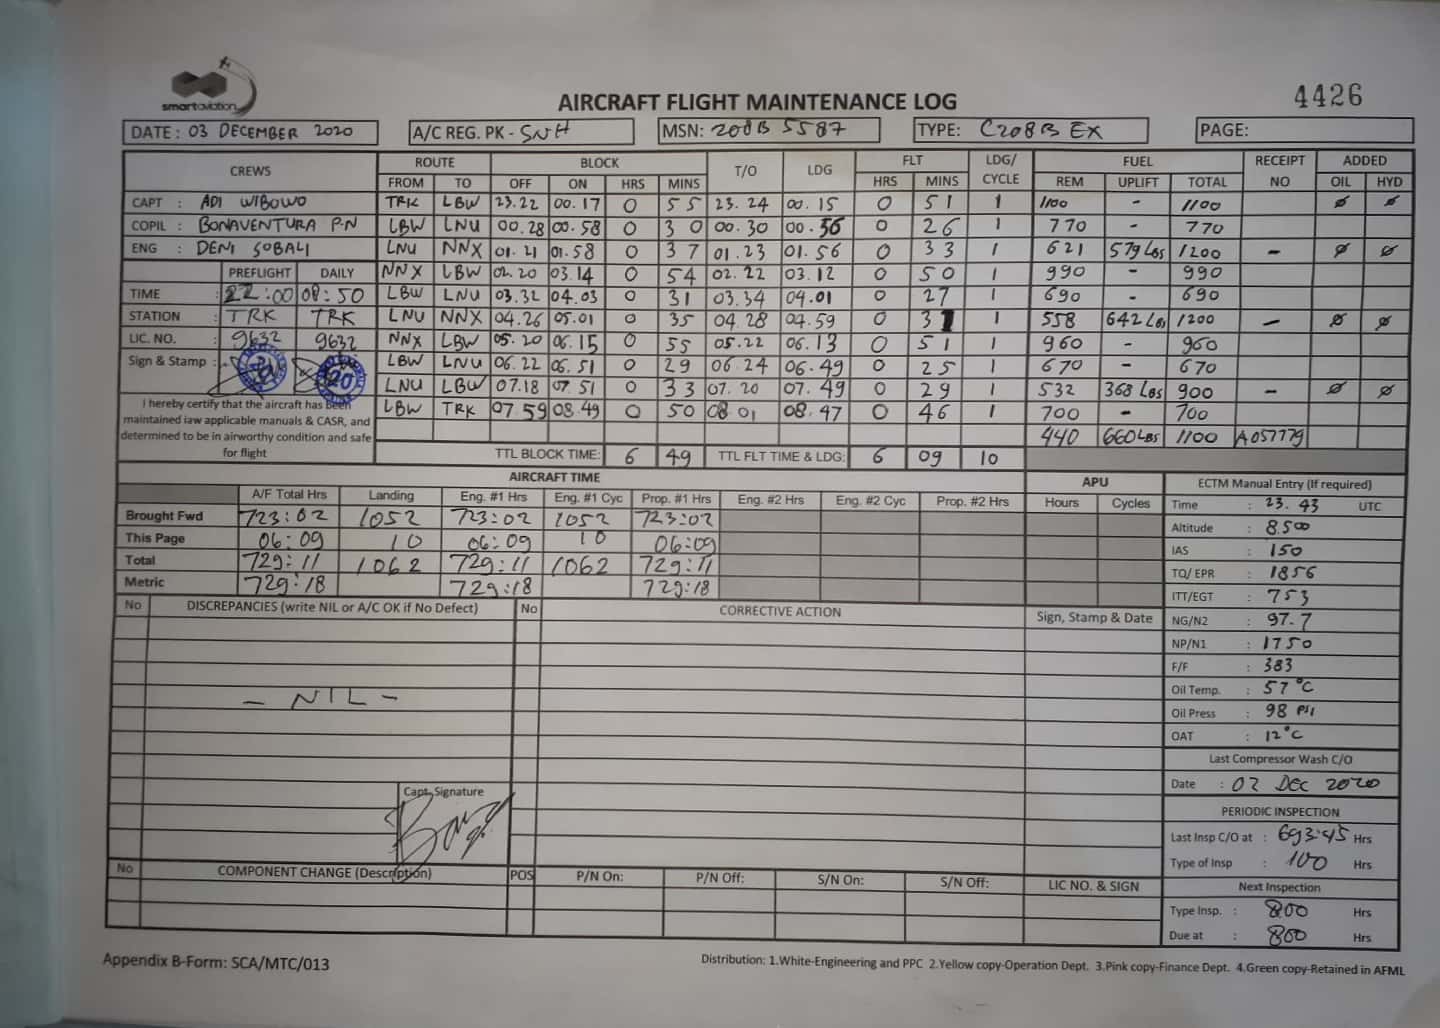 smartaviation
AIRCRAFT FLIGHT MAINTENANCE LOG
4426
DATE : 03 DECEMBER 2020 A/C REG. PK - SNH MSN: 208B 5587 TYPE: C208B EX PAGE:
CREWS ROUTE BLOCK T/O LDG FLT LDG/ CYCLE FUEL RECEIPT NO ADDED
FROM TO OFF ON HRS MINS HRS MINS REM UPLIFT TOTAL OIL HYD
CAPT : ADI WIBOWO TRK LBW 23.22 00.17 0 55 23.24 00.15 0 51 1 1100 - 1100 ø ø
COPIL : BONAVENTURA P.N LBW LNU 00.28 00.58 0 30 00.30 00.56 0 26 1 770 - 770
ENG : DENI SOBALI LNU NNX 01.21 01.58 0 37 01.23 01.56 0 33 1 621 579 LBS 1200 - ø ø
PREFLIGHT DAILY NNX LBW 02.20 03.14 0 54 02.22 03.12 0 50 1 990 - 990
TIME : 22:00 08:50 LBW LNU 03.32 04.03 0 31 03.34 04.01 0 27 1 690 - 690
STATION : TRK TRK LNU NNX 04.26 05.01 0 35 04.28 04.59 0 31 1 558 642 LBS 1200 - ø ø
LIC. NO. : 9632 9632 NNX LBW 05.20 06.15 0 55 05.22 06.13 0 51 1 960 - 960
Sign & Stamp : 20 LBW LNU 06.22 06.51 0 29 06.24 06.49 0 25 1 670 - 670
LNU LBW 07.18 07.51 0 33 07.20 07.49 0 29 1 532 368 LBS 900 - ø ø
I hereby certify that the aircraft has been LBW TRK 07.59 08.49 0 50 08.01 08.47 0 46 1 700 - 700
maintained iaw applicable manuals & CASR, and
determined to be in airworthy condition and safe 440 660 LBS 1100 A057779
for flight TTL BLOCK TIME: 6 49 TTL FLT TIME & LDG: 6 09 10
AIRCRAFT TIME APU ECTM Manual Entry (If required)
A/F Total Hrs Landing Eng. #1 Hrs Eng. #1 Cyc Prop. #1 Hrs Eng. #2 Hrs Eng. #2 Cyc Prop. #2 Hrs Hours Cycles Time : 23.43 UTC
Brought Fwd 723:02 1052 723:02 1052 723:02 Altitude : 8.500
This Page 06:09 10 06:09 10 06:09 IAS : 150
Total 729:11 1062 729:11 1062 729:11 TQ/ EPR : 1856
Metric 729:18 729:18 729:18 ITT/EGT : 753
No DISCREPANCIES (write NIL or A/C OK if No Defect) No CORRECTIVE ACTION Sign, Stamp & Date
NG/N2 : 97.7
NP/N1 : 1750
F/F : 383
- NIL - Oil Temp. : 57 °C
Oil Press : 98 PSI
OAT : 12°C
Last Compressor Wash C/O
Capt. Signature Date : 02 DEC 2020
PERIODIC INSPECTION
Last Insp C/O at : 693:45 Hrs
Type of Insp : 100 Hrs
No COMPONENT CHANGE (Description) POS P/N On: P/N Off: S/N On: S/N Off: LIC NO. & SIGN Next Inspection
Type Insp. : 800 Hrs
Due at : 800 Hrs
Appendix B-Form: SCA/MTC/013
Distribution: 1.White-Engineering and PPC 2.Yellow copy-Operation Dept. 3.Pink copy-Finance Dept. 4.Green copy-Retained in AFML